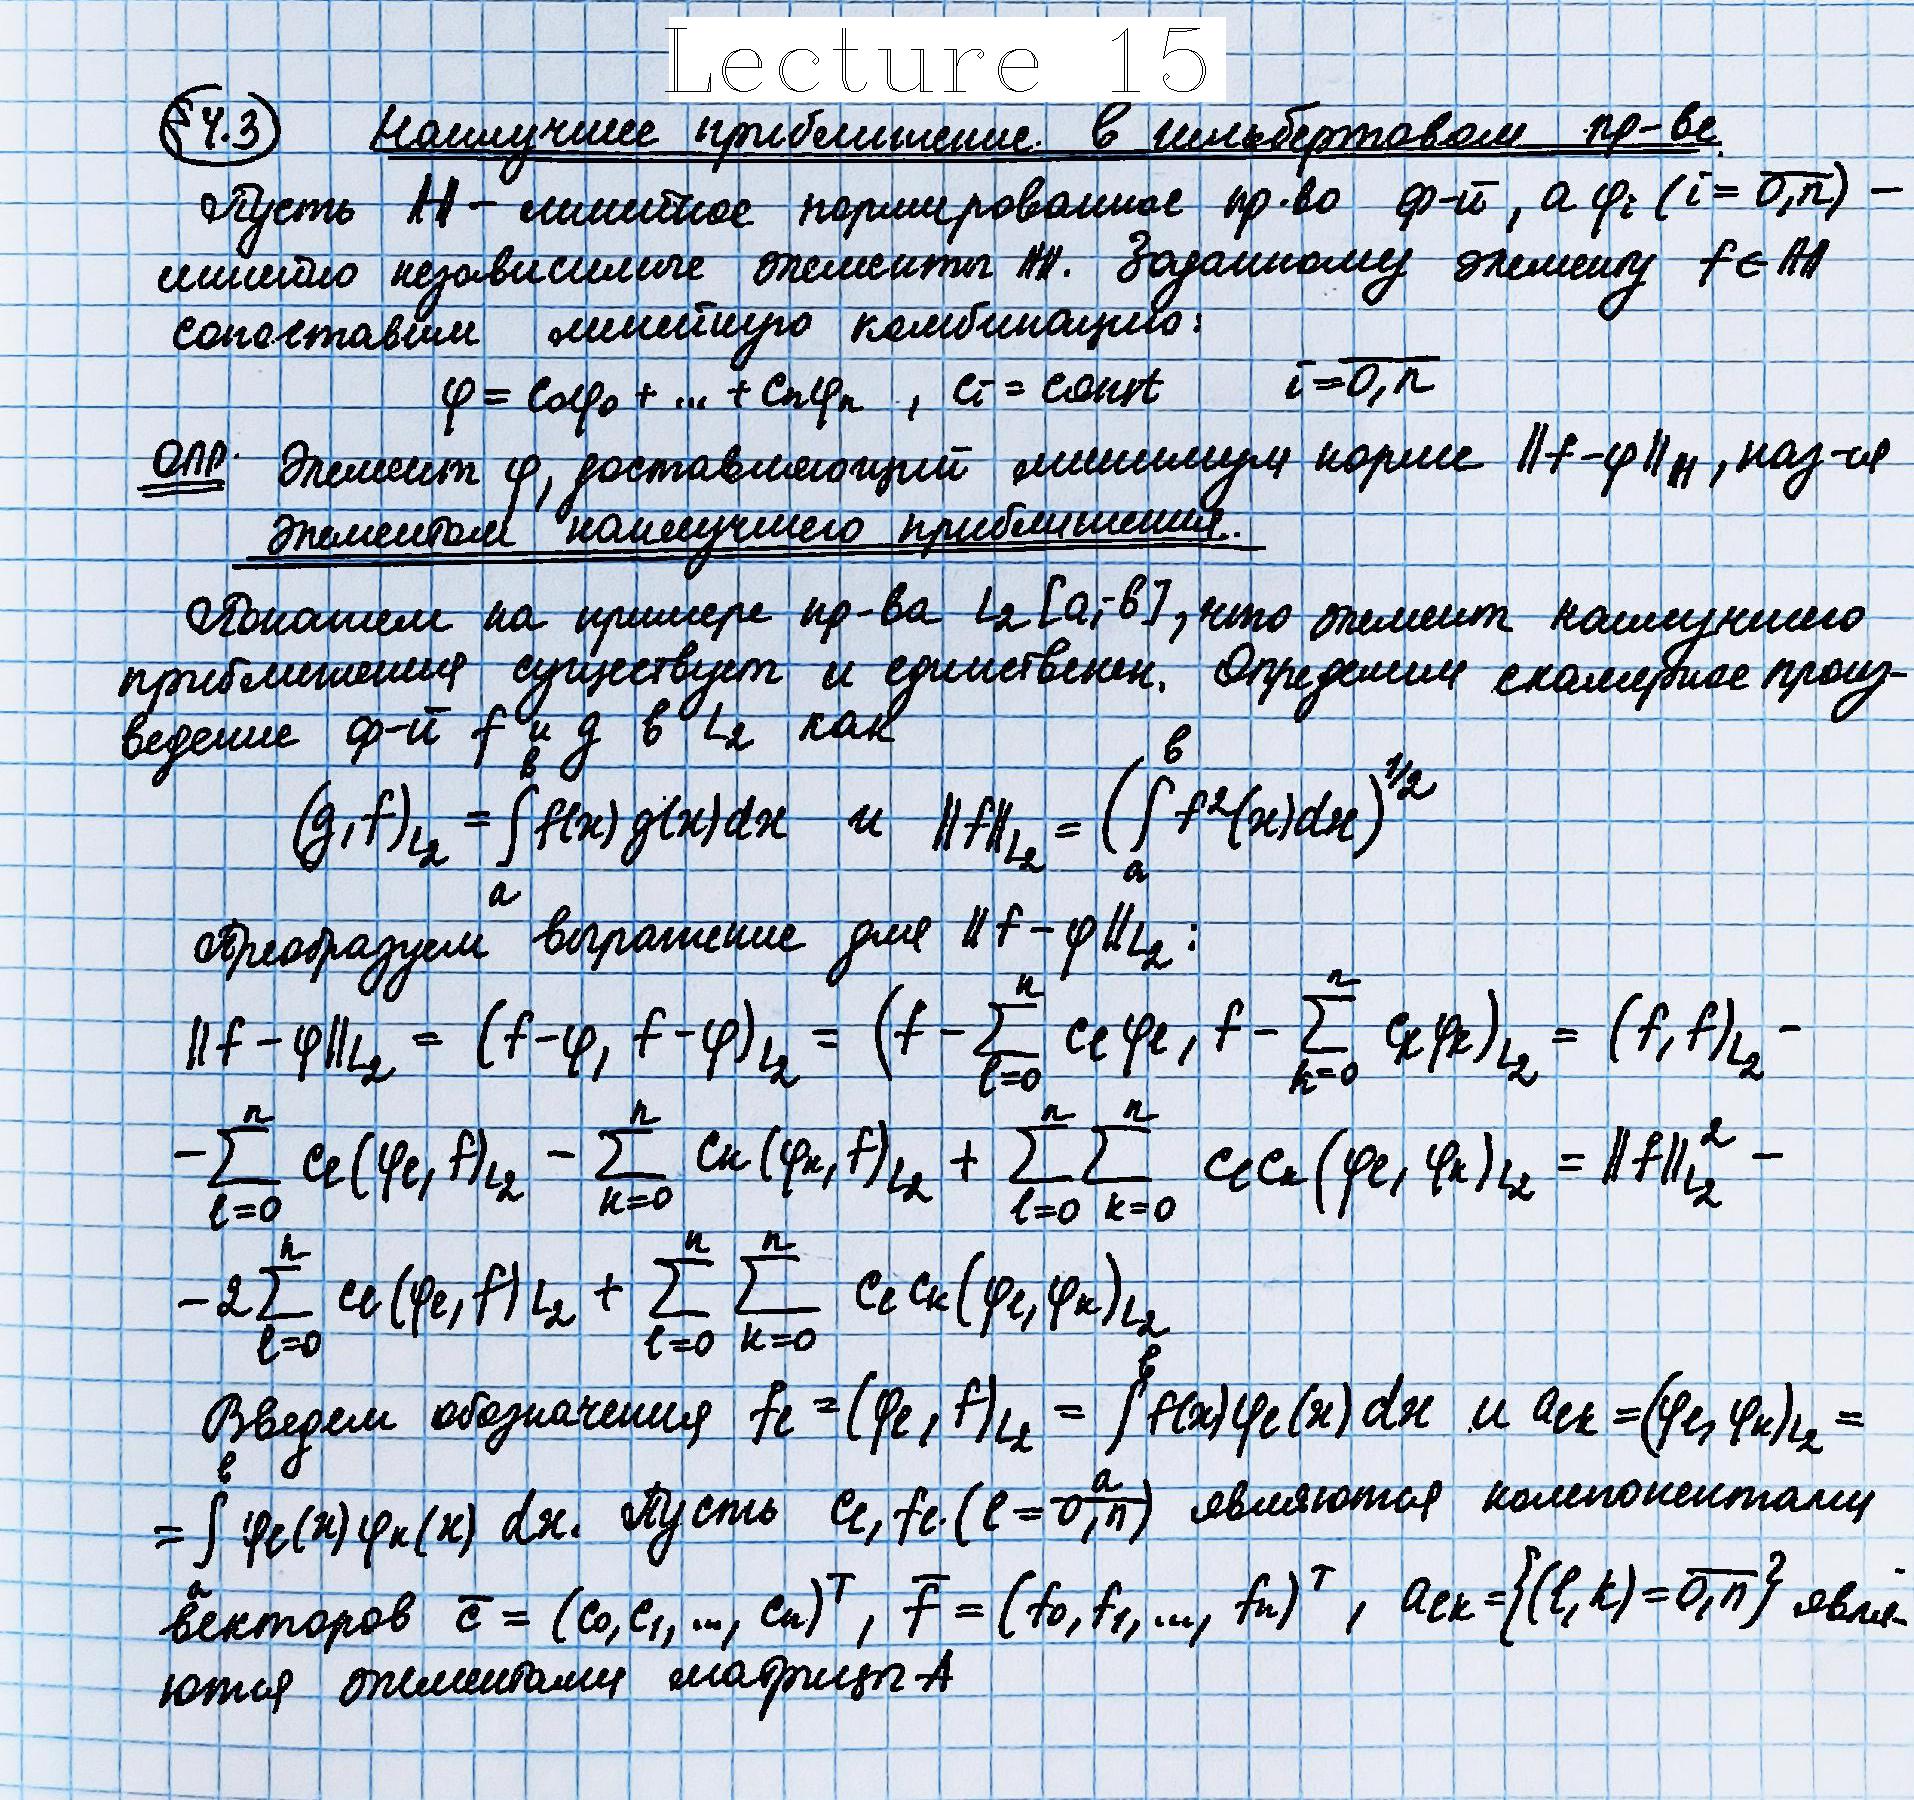 Lecture 15
§4.3 Наилучшее приближение в гильбертовом пр-ве.
Пусть H – линейное нормированное пр-во ф-й, а φᵢ (i = 0,n̅) –
линейно независимые элементы H. Заданному элементу f ∈ H
сопоставим линейную комбинацию:
φ = c₀φ₀ + ... + cₙφₙ , cᵢ = const i = 0,n̅
ОПР. Элемент φ, доставляющий минимум норме ||f-φ||_H, наз-ся
элементом наилучшего приближения.
Покажем на примере пр-ва L₂[a;b], что элемент наилучшего
приближения существует и единственен. Определим скалярное произ-
ведение ф-й f и g в L₂ как
(g,f)_{L₂} = ∫_a^b f(x)g(x)dx и ||f||_{L₂} = (∫_a^b f²(x)dx)^{1/2}
Преобразуем выражение для ||f-φ||_{L₂}:
||f-φ||_{L₂} = (f-φ, f-φ)_{L₂} = (f - ∑_{l=0}^n c_l φ_l, f - ∑_{k=0}^n c_k φ_k)_{L₂} = (f,f)_{L₂} -
- ∑_{l=0}^n c_l(φ_l, f)_{L₂} - ∑_{k=0}^n c_k(φ_k, f)_{L₂} + ∑_{l=0}^n ∑_{k=0}^n c_l c_k(φ_l, φ_k)_{L₂} = ||f||²_{L₂} -
- 2∑_{l=0}^n c_l(φ_l, f)_{L₂} + ∑_{l=0}^n ∑_{k=0}^n c_l c_k(φ_l, φ_k)_{L₂}
Введем обозначения f_l = (φ_l, f)_{L₂} = ∫_a^b f(x)φ_l(x)dx и a_{lk} = (φ_l, φ_k)_{L₂} =
= ∫_a^b φ_l(x)φ_k(x) dx. Пусть c_l, f_l (l = 0,n̅) являются компонентами
векторов c̅ = (c₀, c₁, ..., cₙ)ᵀ, f̅ = (f₀, f₁, ..., fₙ)ᵀ, a_{lk} = {(l, k) = 0,n̅} явля-
ются элементами матрицы A